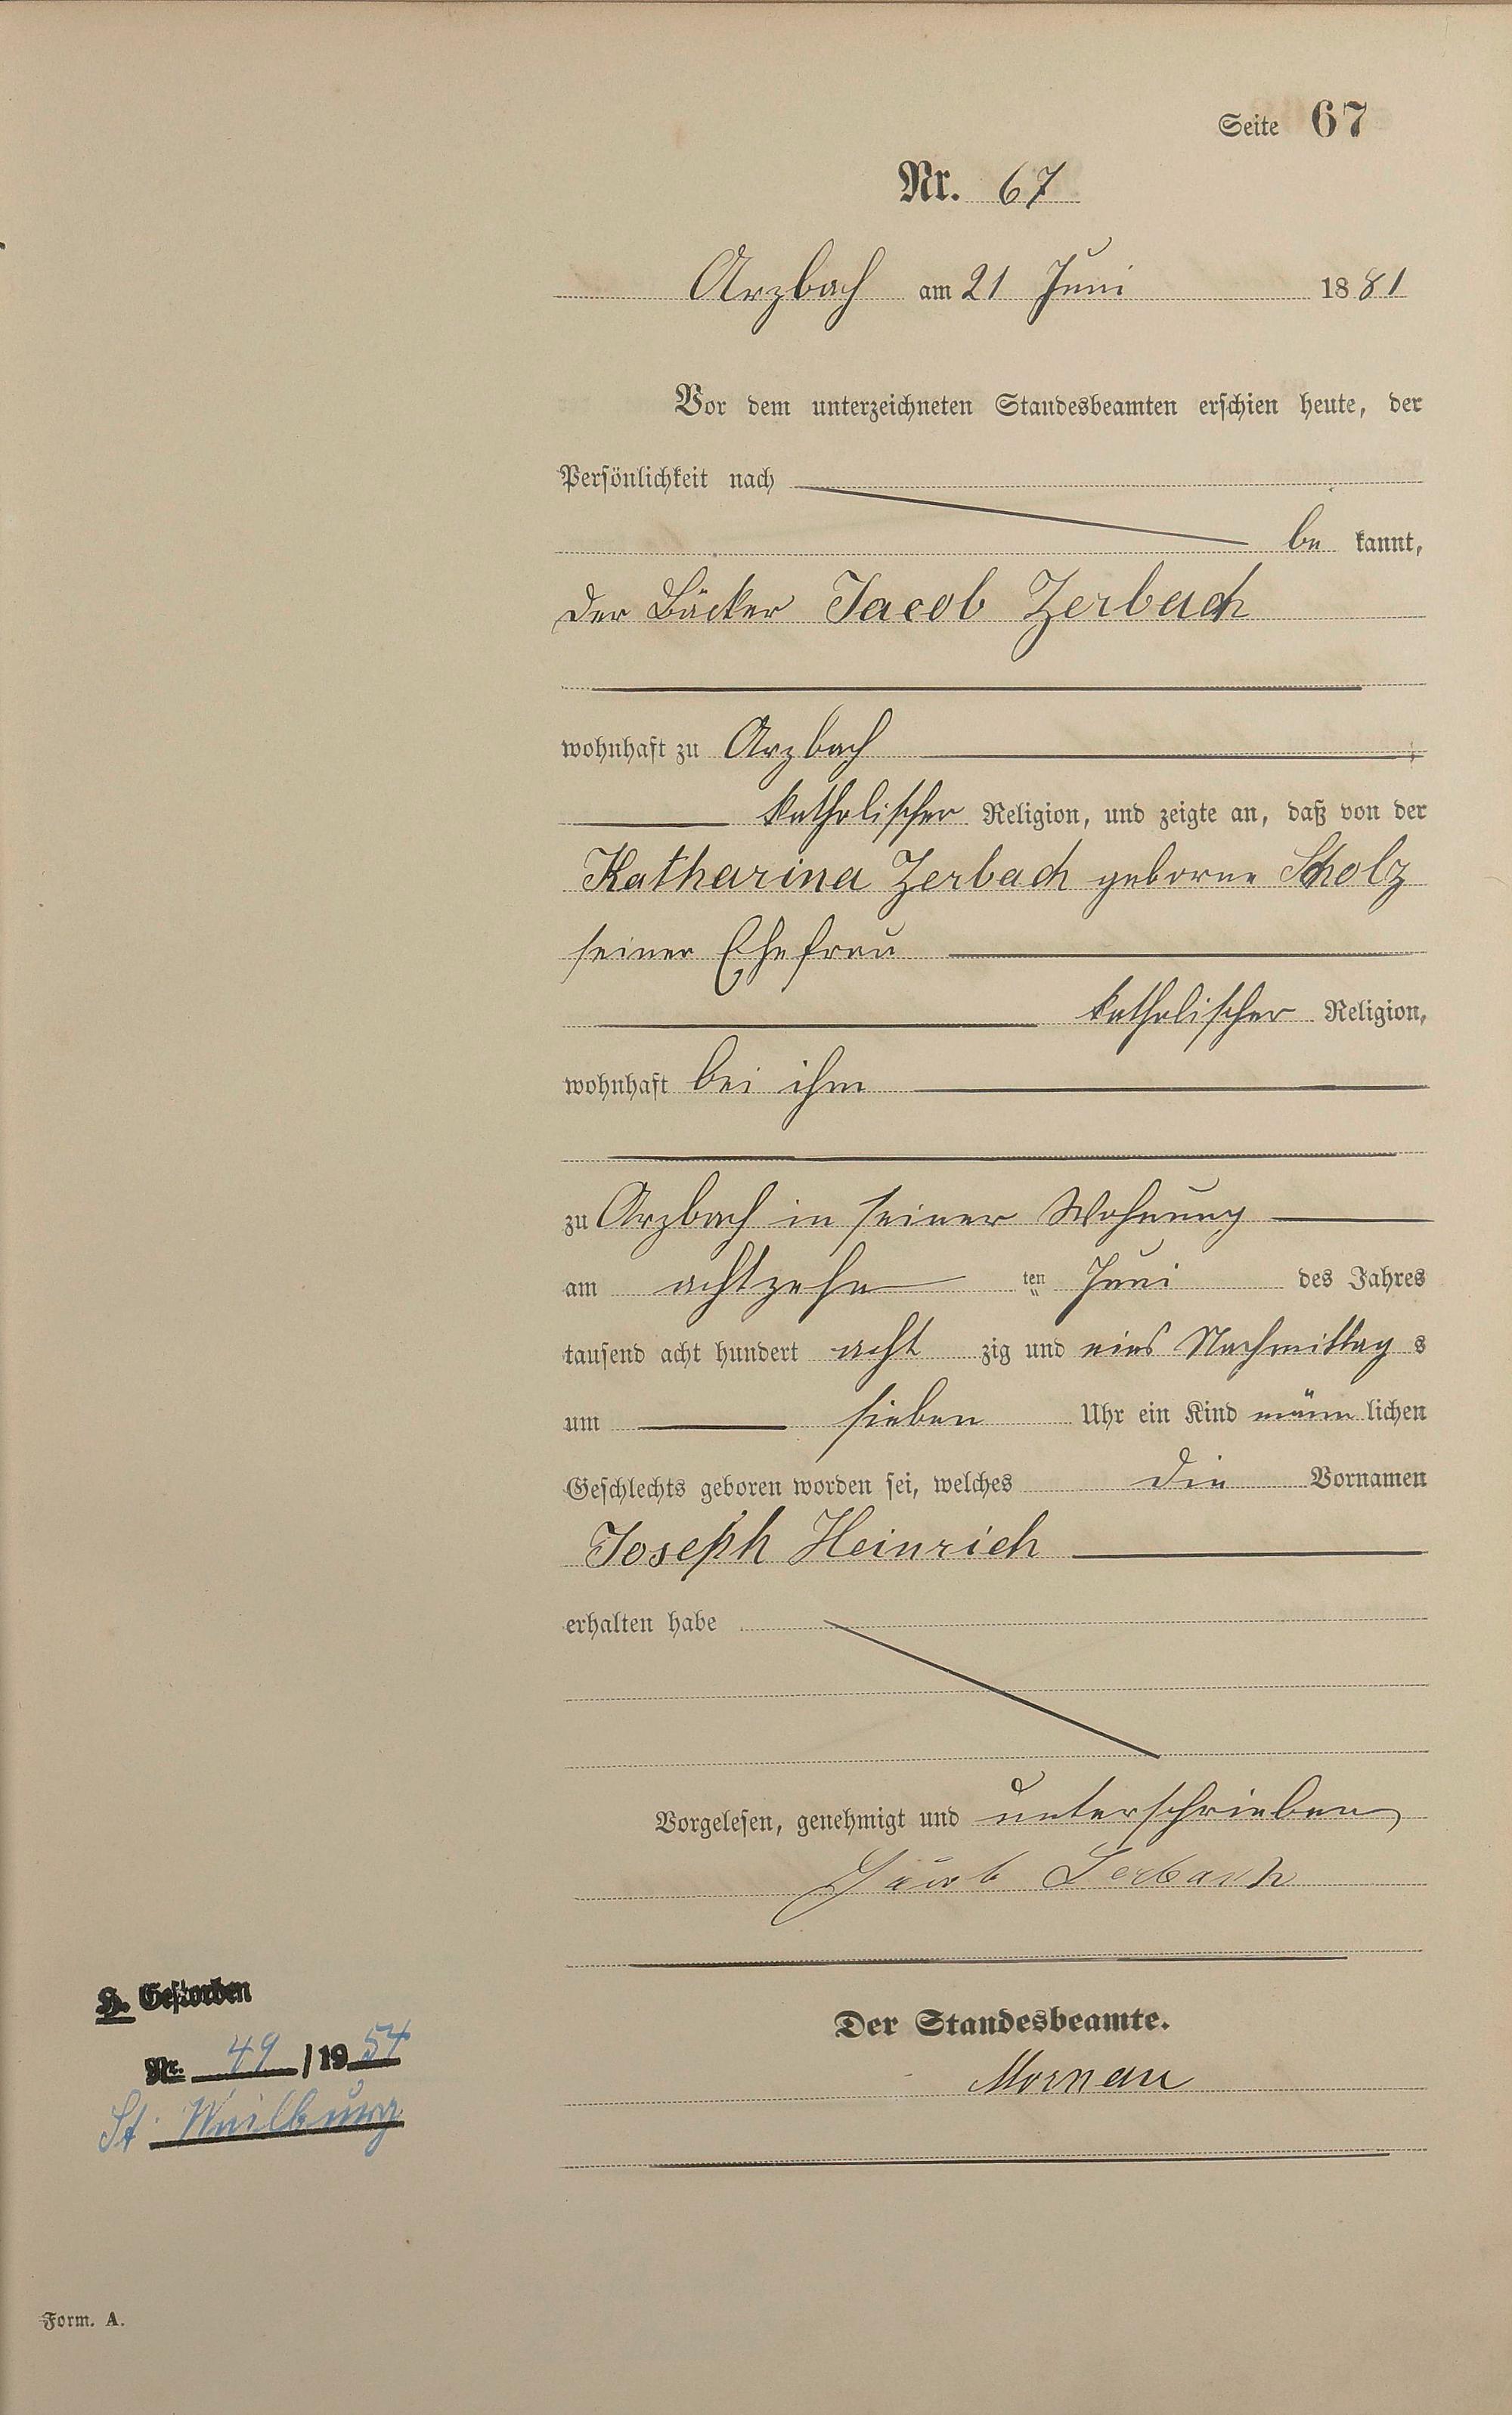 Seite 67
Nr. 67
Arzbach am 21 Juni 1881
Vor dem unterzeichneten Standesbeamten erschien heute, der
Persönlichkeit nach
be kannt,
der Bäcker Jacob Zerbach
wohnhaft zu Arzbach
katholischer Religion, und zeigte an, daß von der
Katharina Zerbach geborne Scholz
seiner Ehefrau
katholischer Religion,
wohnhaft bei ihm
zu Arzbach in seiner Wohnung
am achtzehn ten Juni des Jahres
tausend acht hundert acht zig und eins Nachmittag s
um sieben Uhr ein Kind männ lichen
Geschlechts geboren worden sei, welches die Vornamen
Joseph Heinrich
erhalten habe
Vorgelesen, genehmigt und unterschrieben
Jacob Zerbach
Der Standesbeamte.
H. Gestorben
Nr. 49 / 1954
St. Weilburg
Form. A.